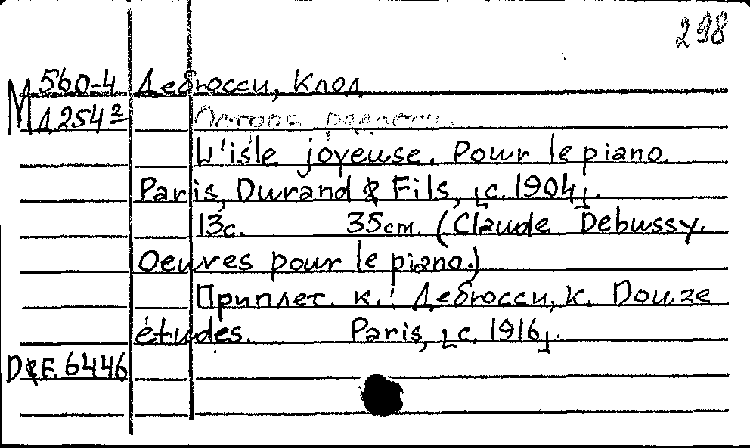 298
М 560-4 Дебюсси, Клод
Д254² Остров радости.
L'isle joyeuse. Pour le piano.
Paris, Durand & Fils, [c. 1904].
13с. 35см. (Claude Debussy.
Oeuvres pour le piano.)
Приплет. к.: Дебюсси, К. Douze
études. Paris, [c. 1916].
D&F. 6446